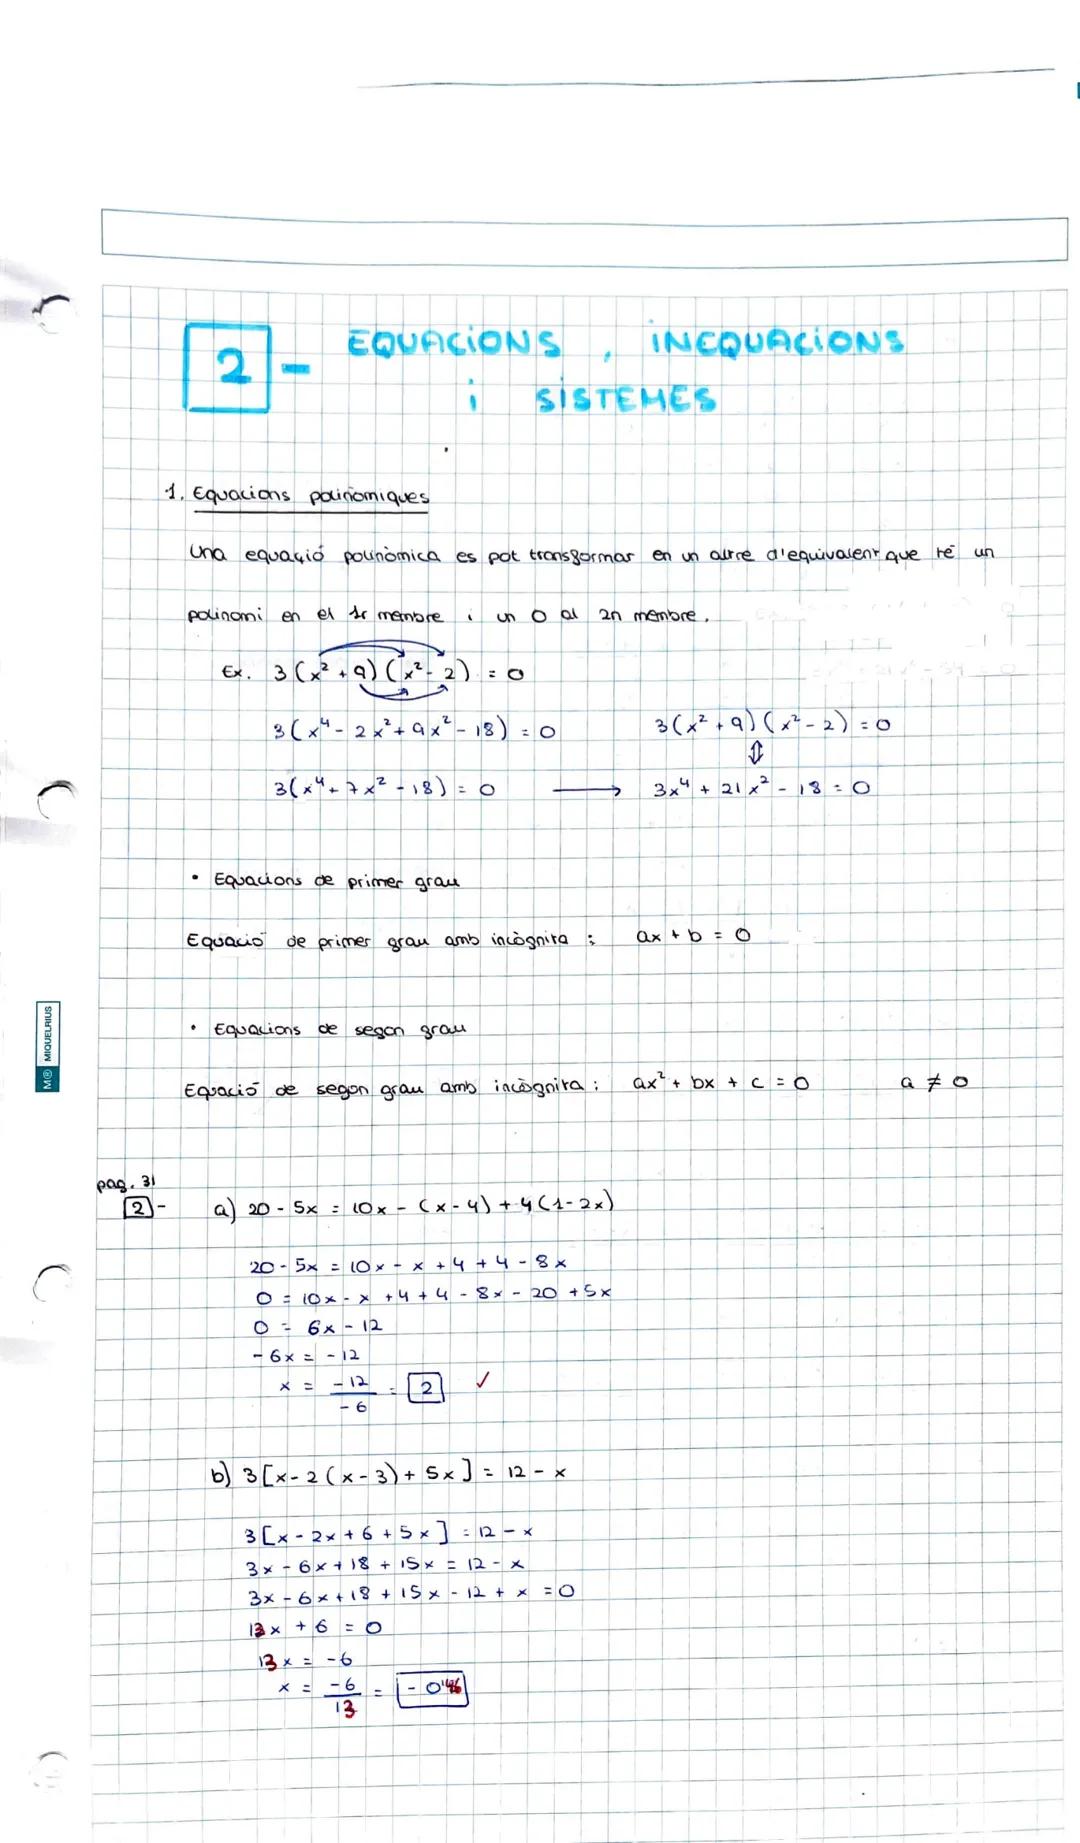 2 - EQUACIONS , INEQUACIONS
i SISTEMES
1. Equacions polinòmiques
Una equació polinòmica es pot transformar en un altre d'equivalent que té un
polinomi en el 1r membre i un 0 al 2n membre.
Ex. 3(x² + 9)(x² - 2) = 0
3(x⁴ - 2x² + 9x² - 18) = 0
3(x² + 9)(x² - 2) = 0
⇕
3(x⁴ + 7x² - 18) = 0 ⟶ 3x⁴ + 21x² - 18 = 0
• Equacions de primer grau
Equació de primer grau amb incògnita : ax + b = 0
• Equacions de segon grau
Equació de segon grau amb incògnita : ax² + bx + c = 0 a ≠ 0
M® MIQUELRIUS
pag. 31
2 - a) 20 - 5x = 10x - (x - 4) + 4(1 - 2x)
20 - 5x = 10x - x + 4 + 4 - 8x
0 = 10x - x + 4 + 4 - 8x - 20 + 5x
0 = 6x - 12
- 6x = - 12
x = -12/-6 = 2 ✓
b) 3[x - 2(x - 3) + 5x] = 12 - x
3[x - 2x + 6 + 5x] = 12 - x
3x - 6x + 18 + 15x = 12 - x
3x - 6x + 18 + 15x - 12 + x = 0
13x + 6 = 0
13x = -6
x = -6/13 = - 0'46